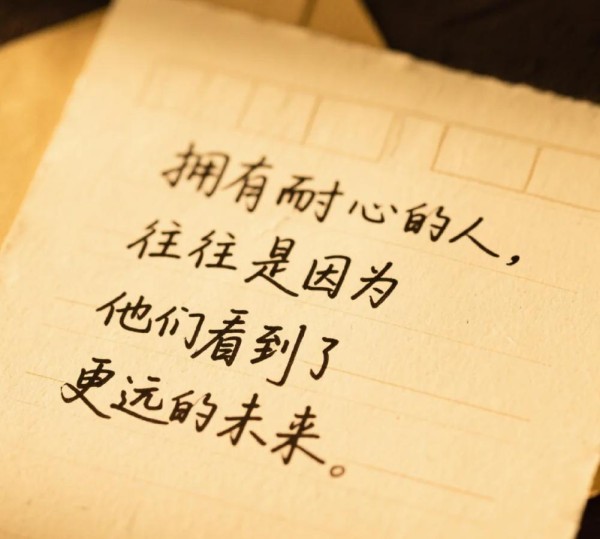 拥有耐心的人，
往往是因为
他们看到了
更远的未来。